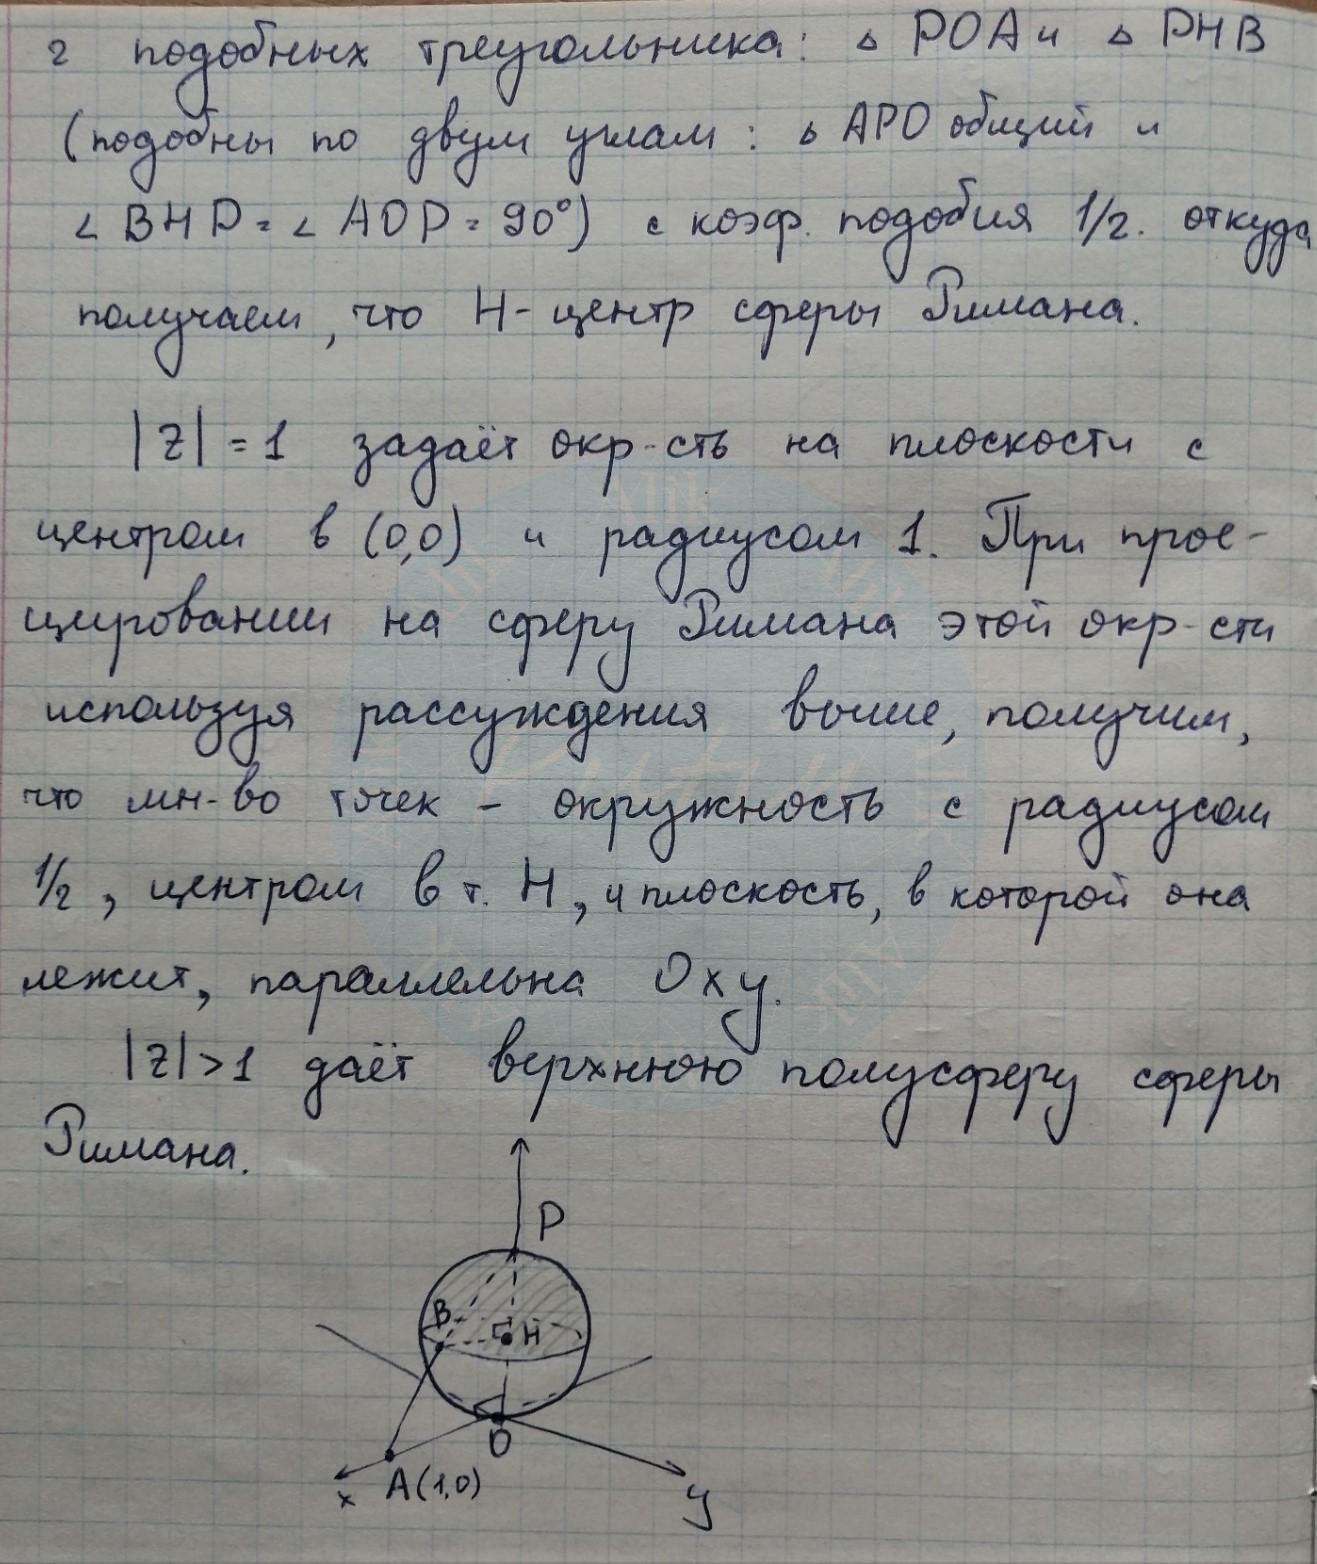 2 подобных треугольника: △ POA и △ PHB
(подобны по двум углам: △ APO общий и
∠ BHP = ∠ AOP = 90°) с коэф. подобия 1/2. откуда
получаем, что H - центр сферы Римана.
|z| = 1 задаёт окр-сть на плоскости с
центром в (0,0) и радиусом 1. При прое-
цировании на сферу Римана этой окр-сти
используя рассуждения выше, получим,
что мн-во точек - окружность с радиусом
1/2, центром в т. H, и плоскость, в которой она
лежит, параллельна Oxy.
|z| > 1 даёт верхнюю полусферу сферы
Римана.
P
B
H
O
x A(1,0)
y